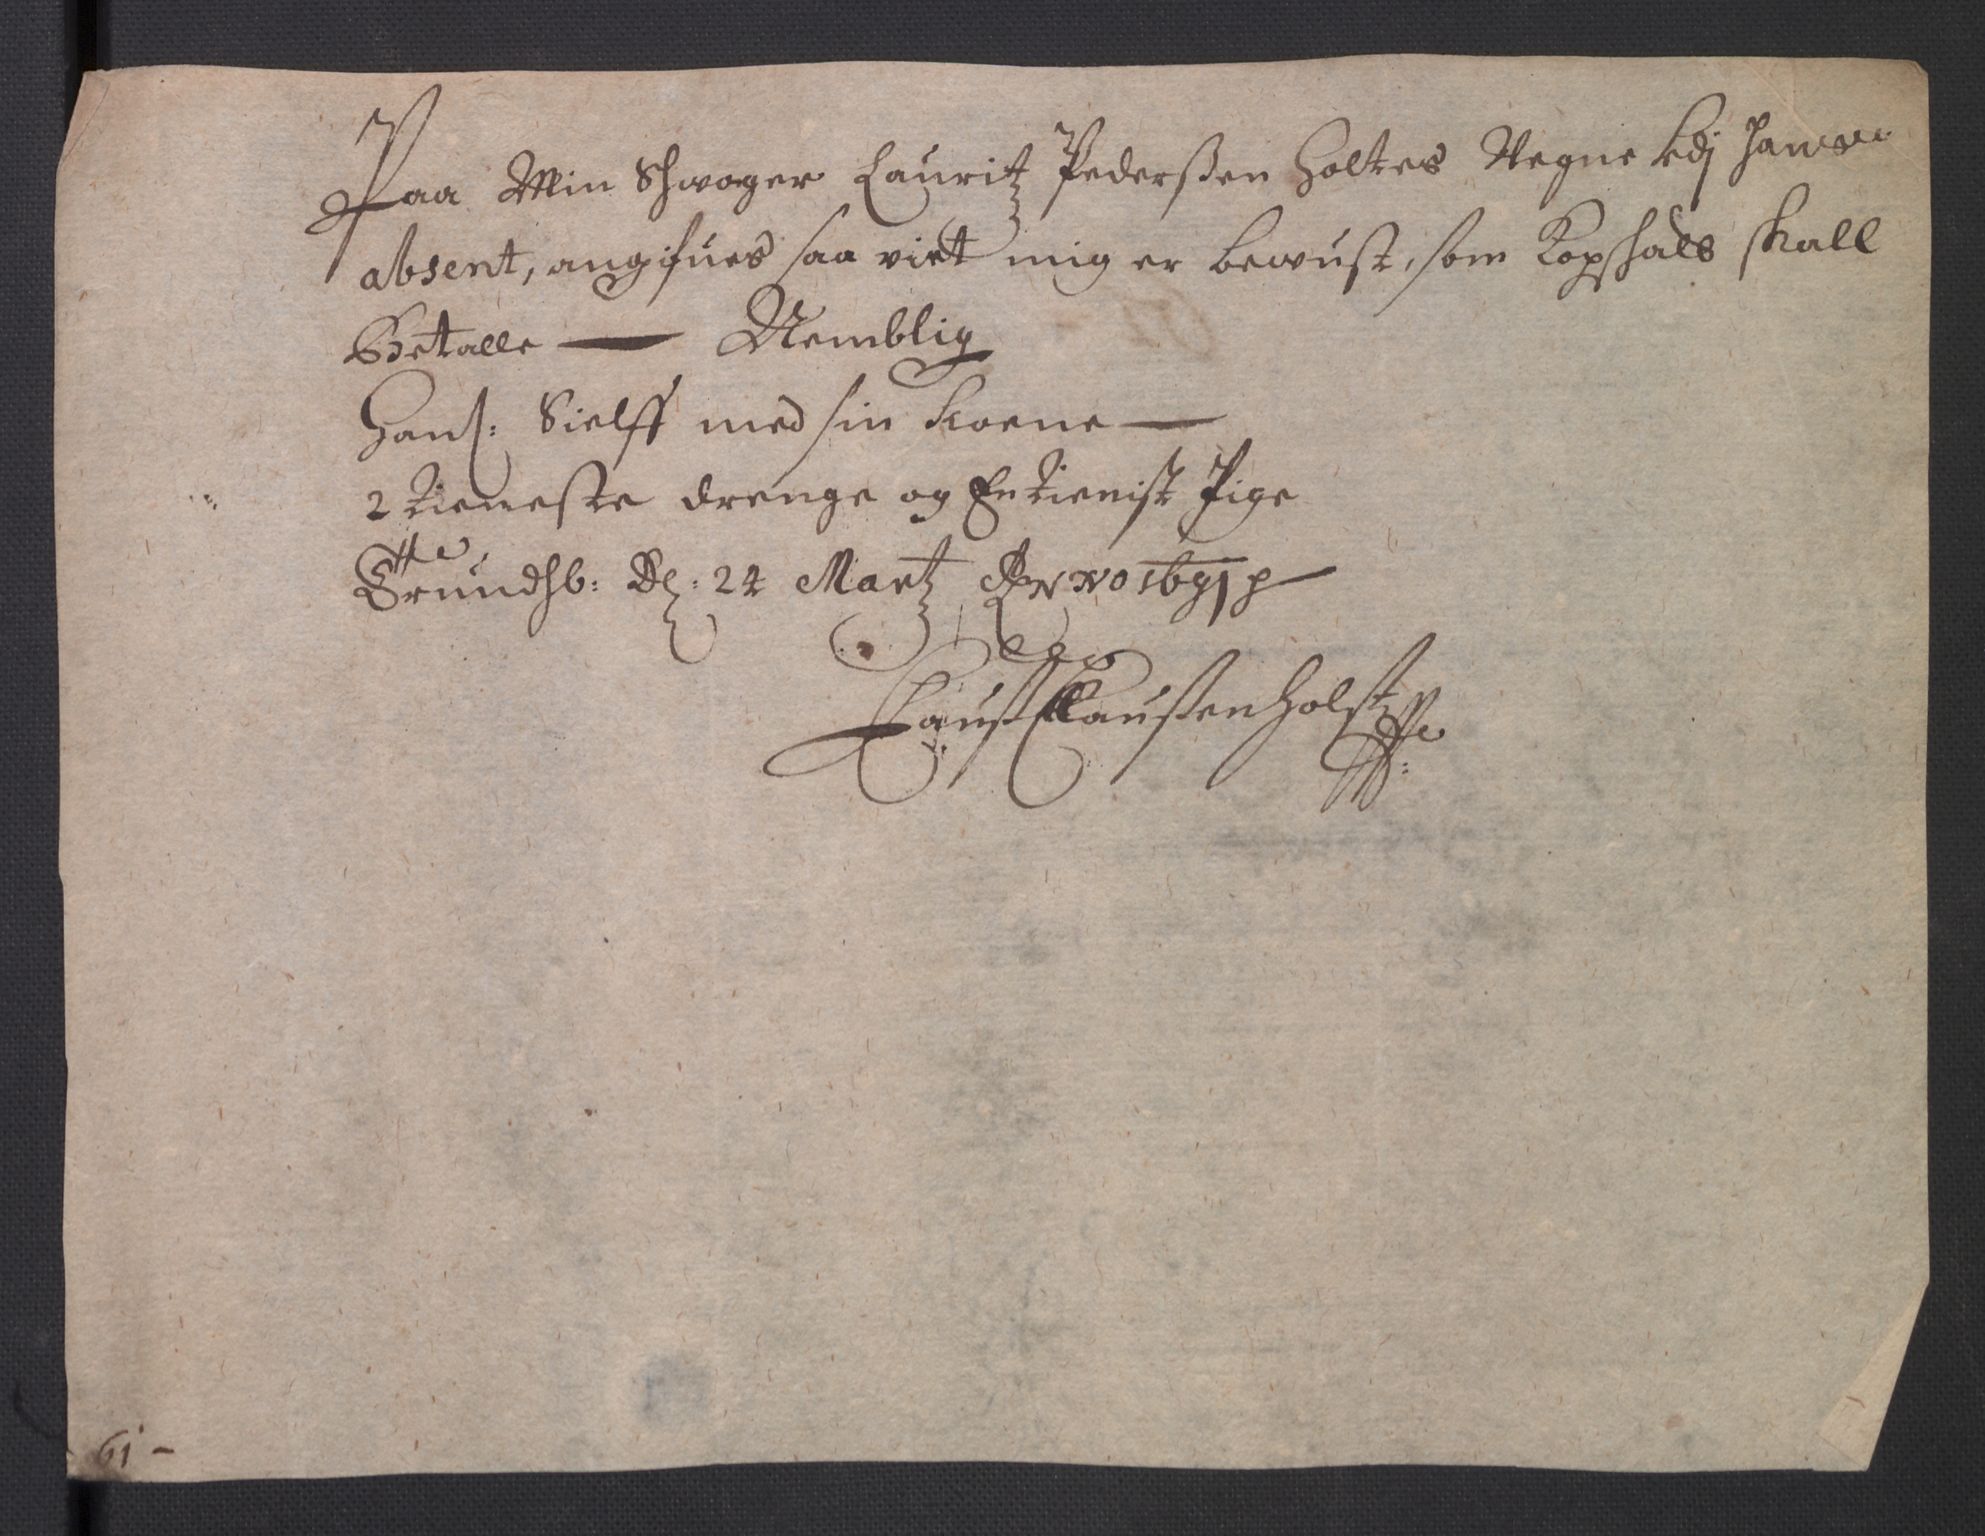 Paa Min Schwoger Lauritz Pederßen Holtes Vegne
absent, angifues saa vict mig er bewust, som Kopschats skall
Betalle — Nemblig
Hanß: Sielff med sin Koene —
2 tieneste drenge og En tienist Pige
Trundhb: Dl: 24 Martz Anno 1691 p
Lauß Claußen Holst
61 -